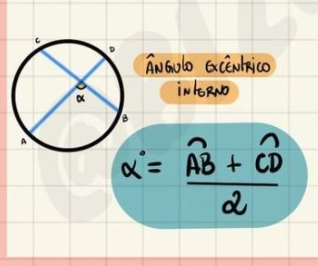 C
D
ÂNGULO EXCÊNTRICO
INTERNO
α
B
A
α° = (A͡B + C͡D) / 2